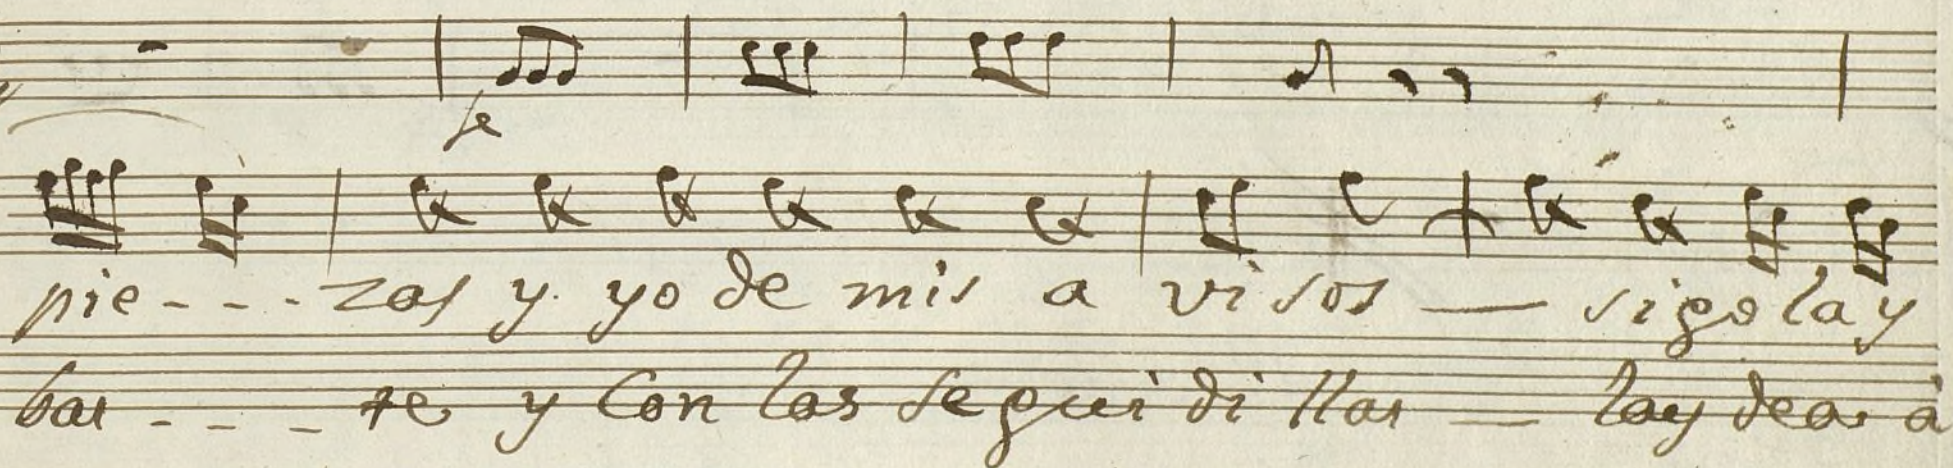 fe
pie - - - zas y yo de mis a vi sos — sigo la y
bas - - - te y Con las segui di llas — lay dea a